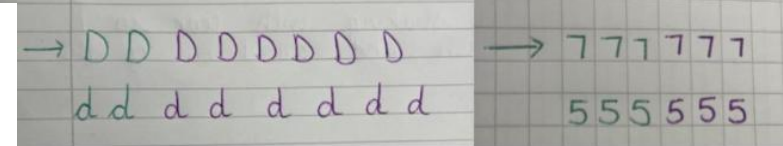 → D D D D D D D D
d d d d d d d d
→ 7 7 7 7 7 7
5 5 5 5 5 5